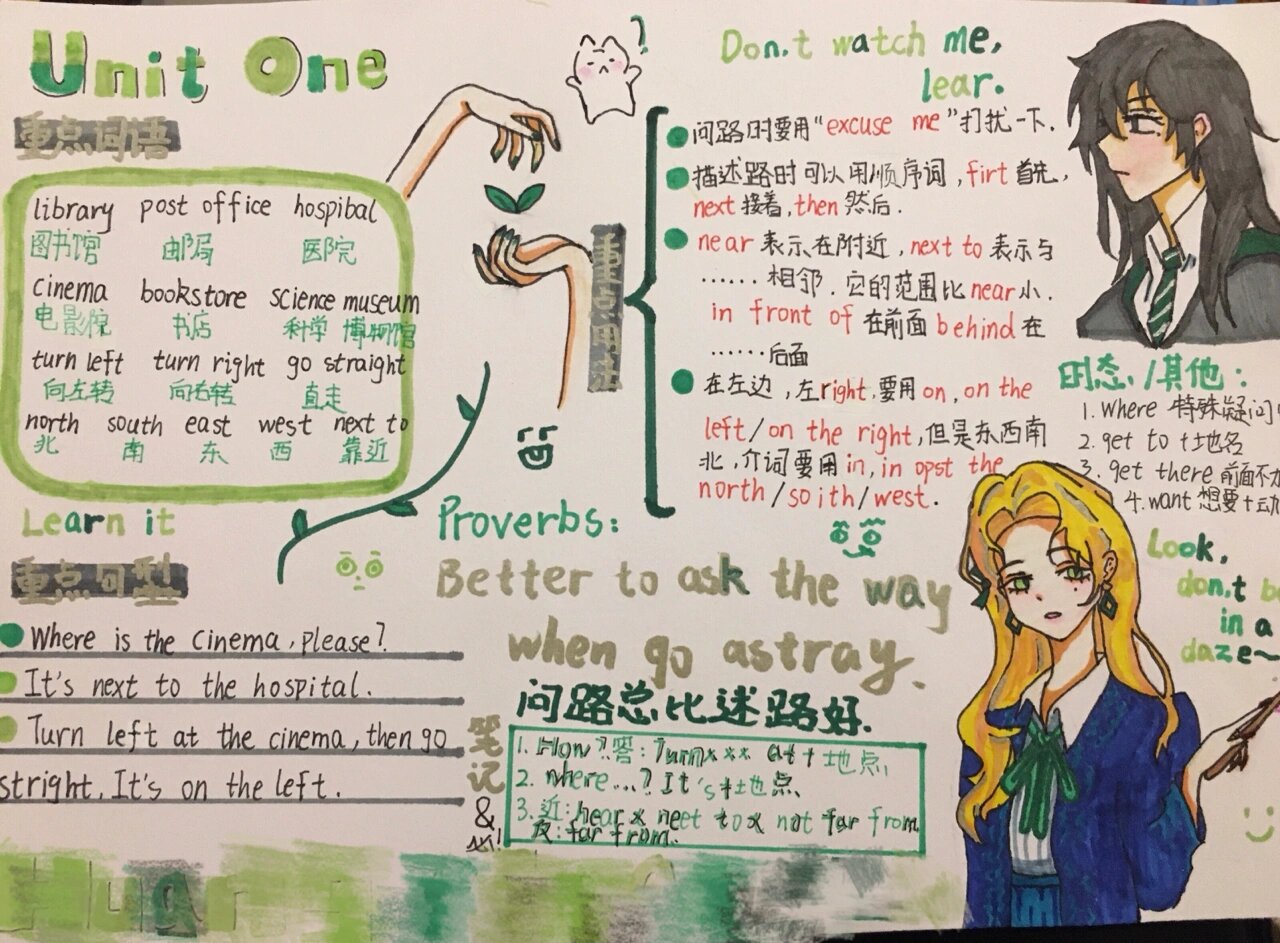 Unit One
重点词语
library post office hospibal
图书馆 邮局 医院
cinema bookstore science museum
电影院 书店 科学 博物馆
turn left turn right go straight
向左转 向右转 直走
north south east west next to
北 南 东 西 靠近
Learn it
重点句型
Where is the cinema, please?
It's next to the hospital.
Turn left at the cinema, then go
stright. It's on the left.
?
Don,t watch me,
lear.
重点用法
问路时要用“excuse me”打扰一下.
描述路时可以用顺序词,firt 首先,
next 接着, then 然后.
near 表示在附近, next to 表示与
......相邻. 它的范围比 near 小.
in front of 在前面 behind 在
......后面
在左边,左right,要用 on, on the
left/on the right,但是东西南
北,介词要用in, in opst the
north/so ith/west.
时态/其他:
1. where 特殊疑问
2. get to +地名
3. get there 前面不
4. want 想要+动
Proverbs:
Better to ask the way
when go astray.
问路总比迷路好.
笔记
&
1. How?答: Turn××× at +地点,
2. where...? It's+地点
3.近: near × neet to× not far from
反: far from.
Look,
don,t b
in a
daze~